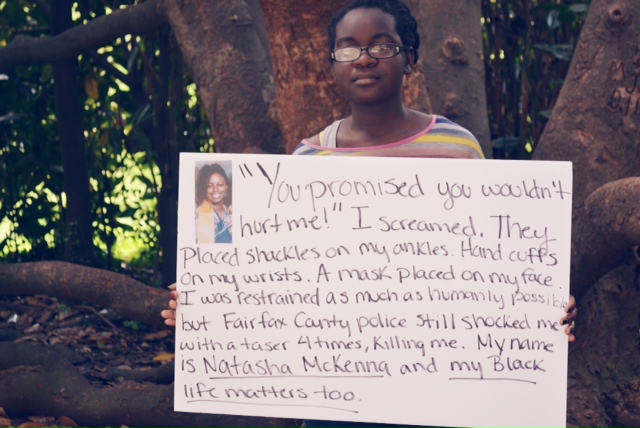 "You promised you wouldn't
hurt me!" I screamed. They
Placed shackles on my ankles. Hand cuffs
on my wrists. A mask placed on my face.
I was restrained as much as humanly possible
but Fairfax County police still shocked me
with a taser 4 times, killing me. My name
is Natasha McKenna and my Black
life matters too.